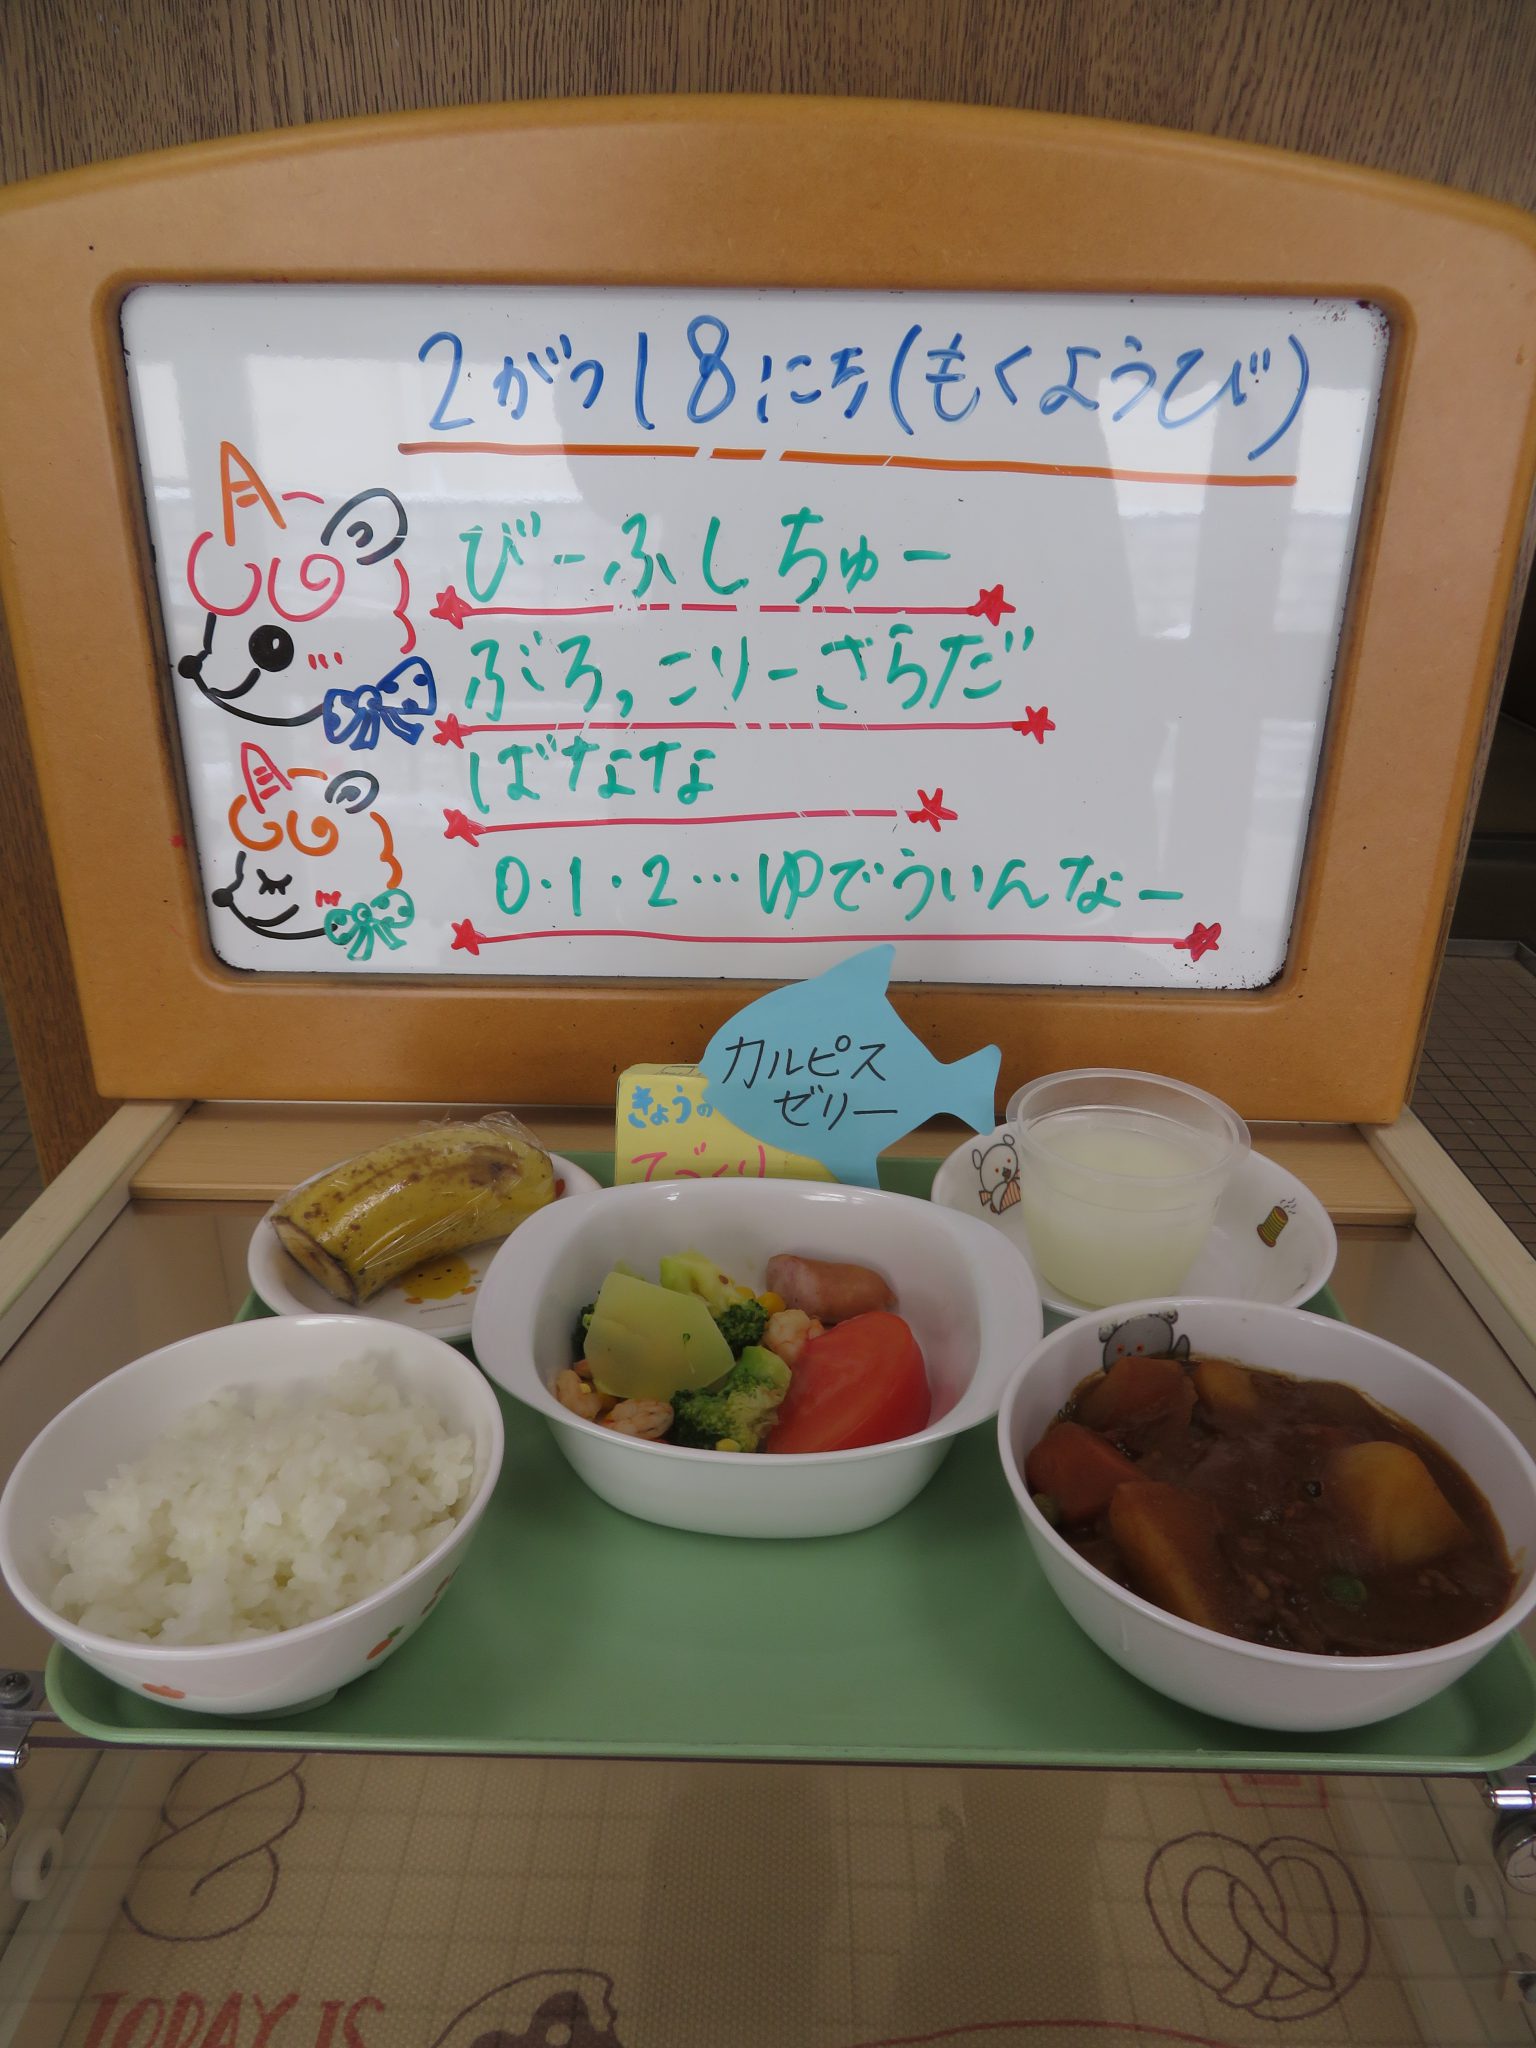 2がつ18にち(もくようび)
びーふしちゅー
ぶろっこりーさらだ
ばなな
0・1・2…ゆでういんなー
カルピス
ゼリー
きょうの
てづくり
TODAY IS